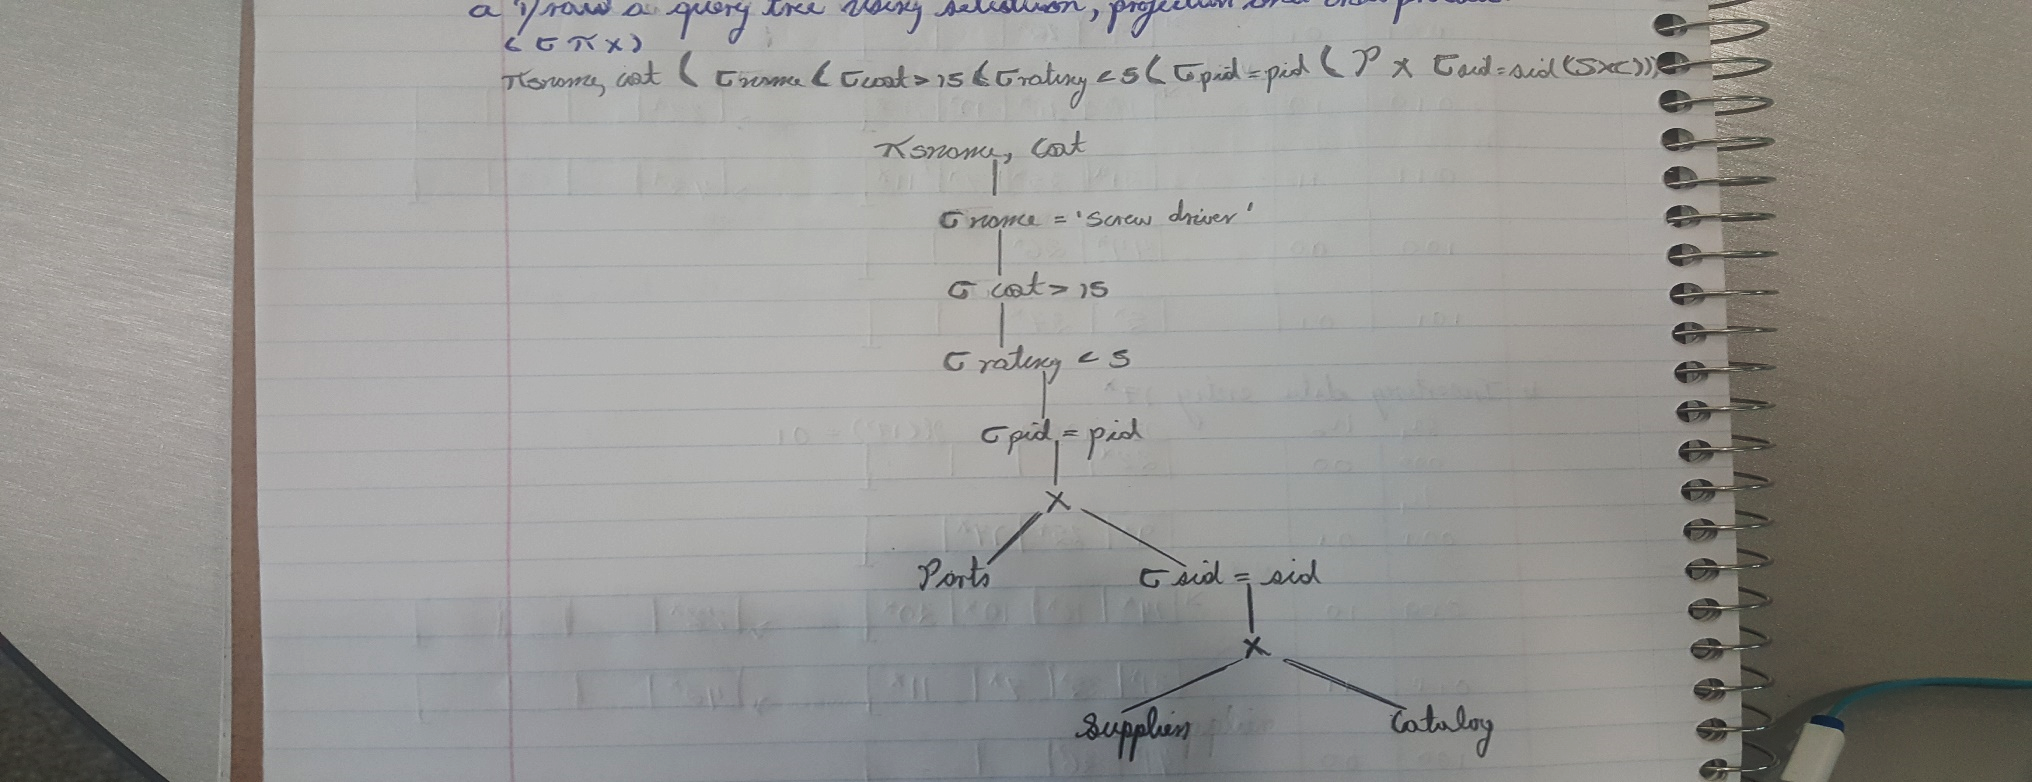 a Draw a query tree using selection, projection and cross product
(σ π x)
πsname, cost ( σname ( σcost > 15 ( σrating < 5 ( σpid = pid ( P x σsid = sid (SxC)))
πsname, cost
σ name = 'screw driver'
σ cost > 15
σ rating < 5
σ pid = pid
x
Parts σ sid = sid
x
Suppliers Catalog